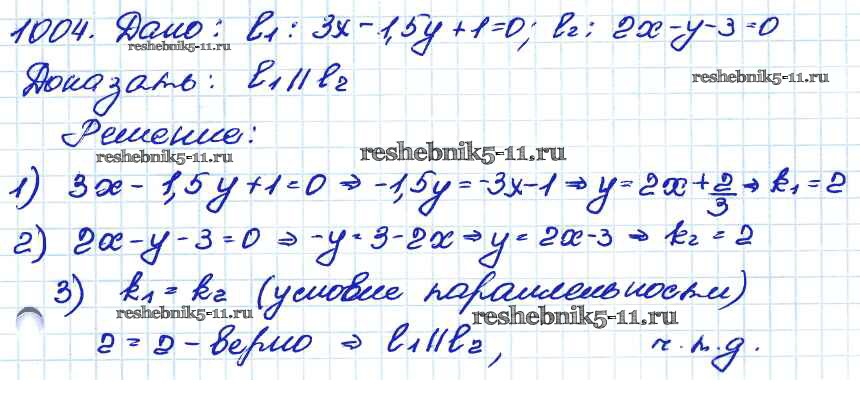 1004. Дано: l₁: 3x - 1,5y + 1 = 0; l₂: 2x - y - 3 = 0
reshebnik5-11.ru
Доказать: l₁ || l₂
reshebnik5-11.ru
Решение:
reshebnik5-11.ru
reshebnik5-11.ru
1) 3x - 1,5y + 1 = 0 ⇒ -1,5y = -3x - 1 ⇒ y = 2x + 2/3 ⇒ k₁ = 2
2) 2x - y - 3 = 0 ⇒ -y = 3 - 2x ⇒ y = 2x - 3 ⇒ k₂ = 2
3) k₁ = k₂ (условие параллельности)
reshebnik5-11.ru
reshebnik5-11.ru
2 = 2 - верно ⇒ l₁ || l₂, ч.т.д.